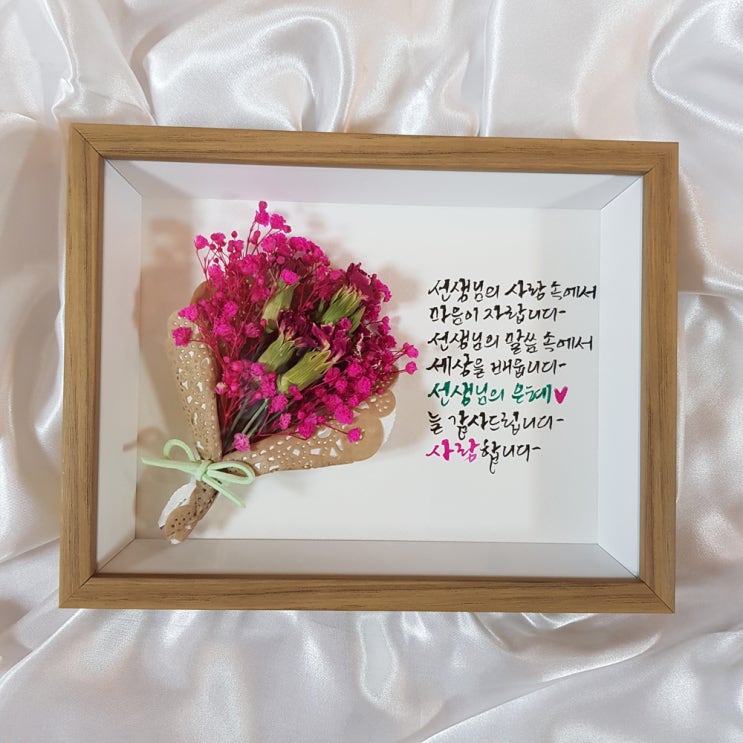 선생님의 사랑 속에서
마음이 자랍니다~
선생님의 말씀 속에서
세상을 배웁니다~
선생님의 은혜♥
늘 감사드립니다~
사랑합니다~